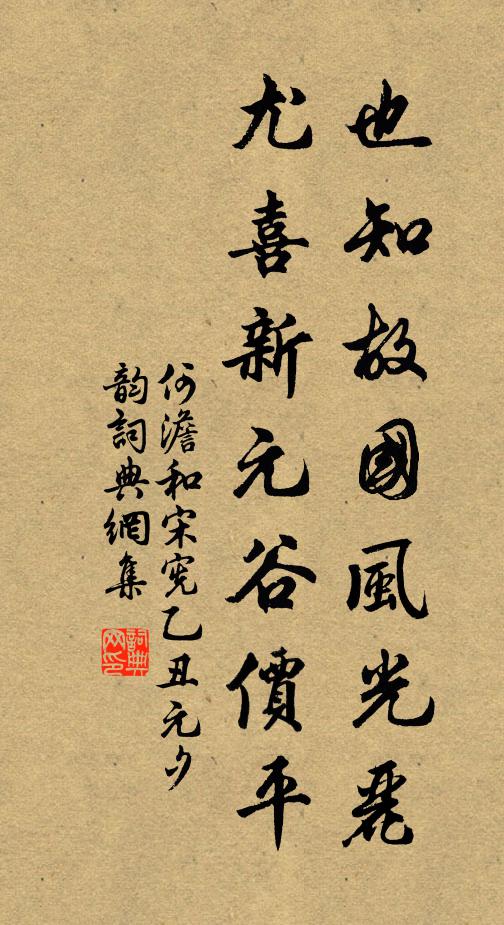 也知故國風光麗
尤喜新元谷價平
何澹和宋宪乙丑元夕
韵詞典網集
詞典
网印